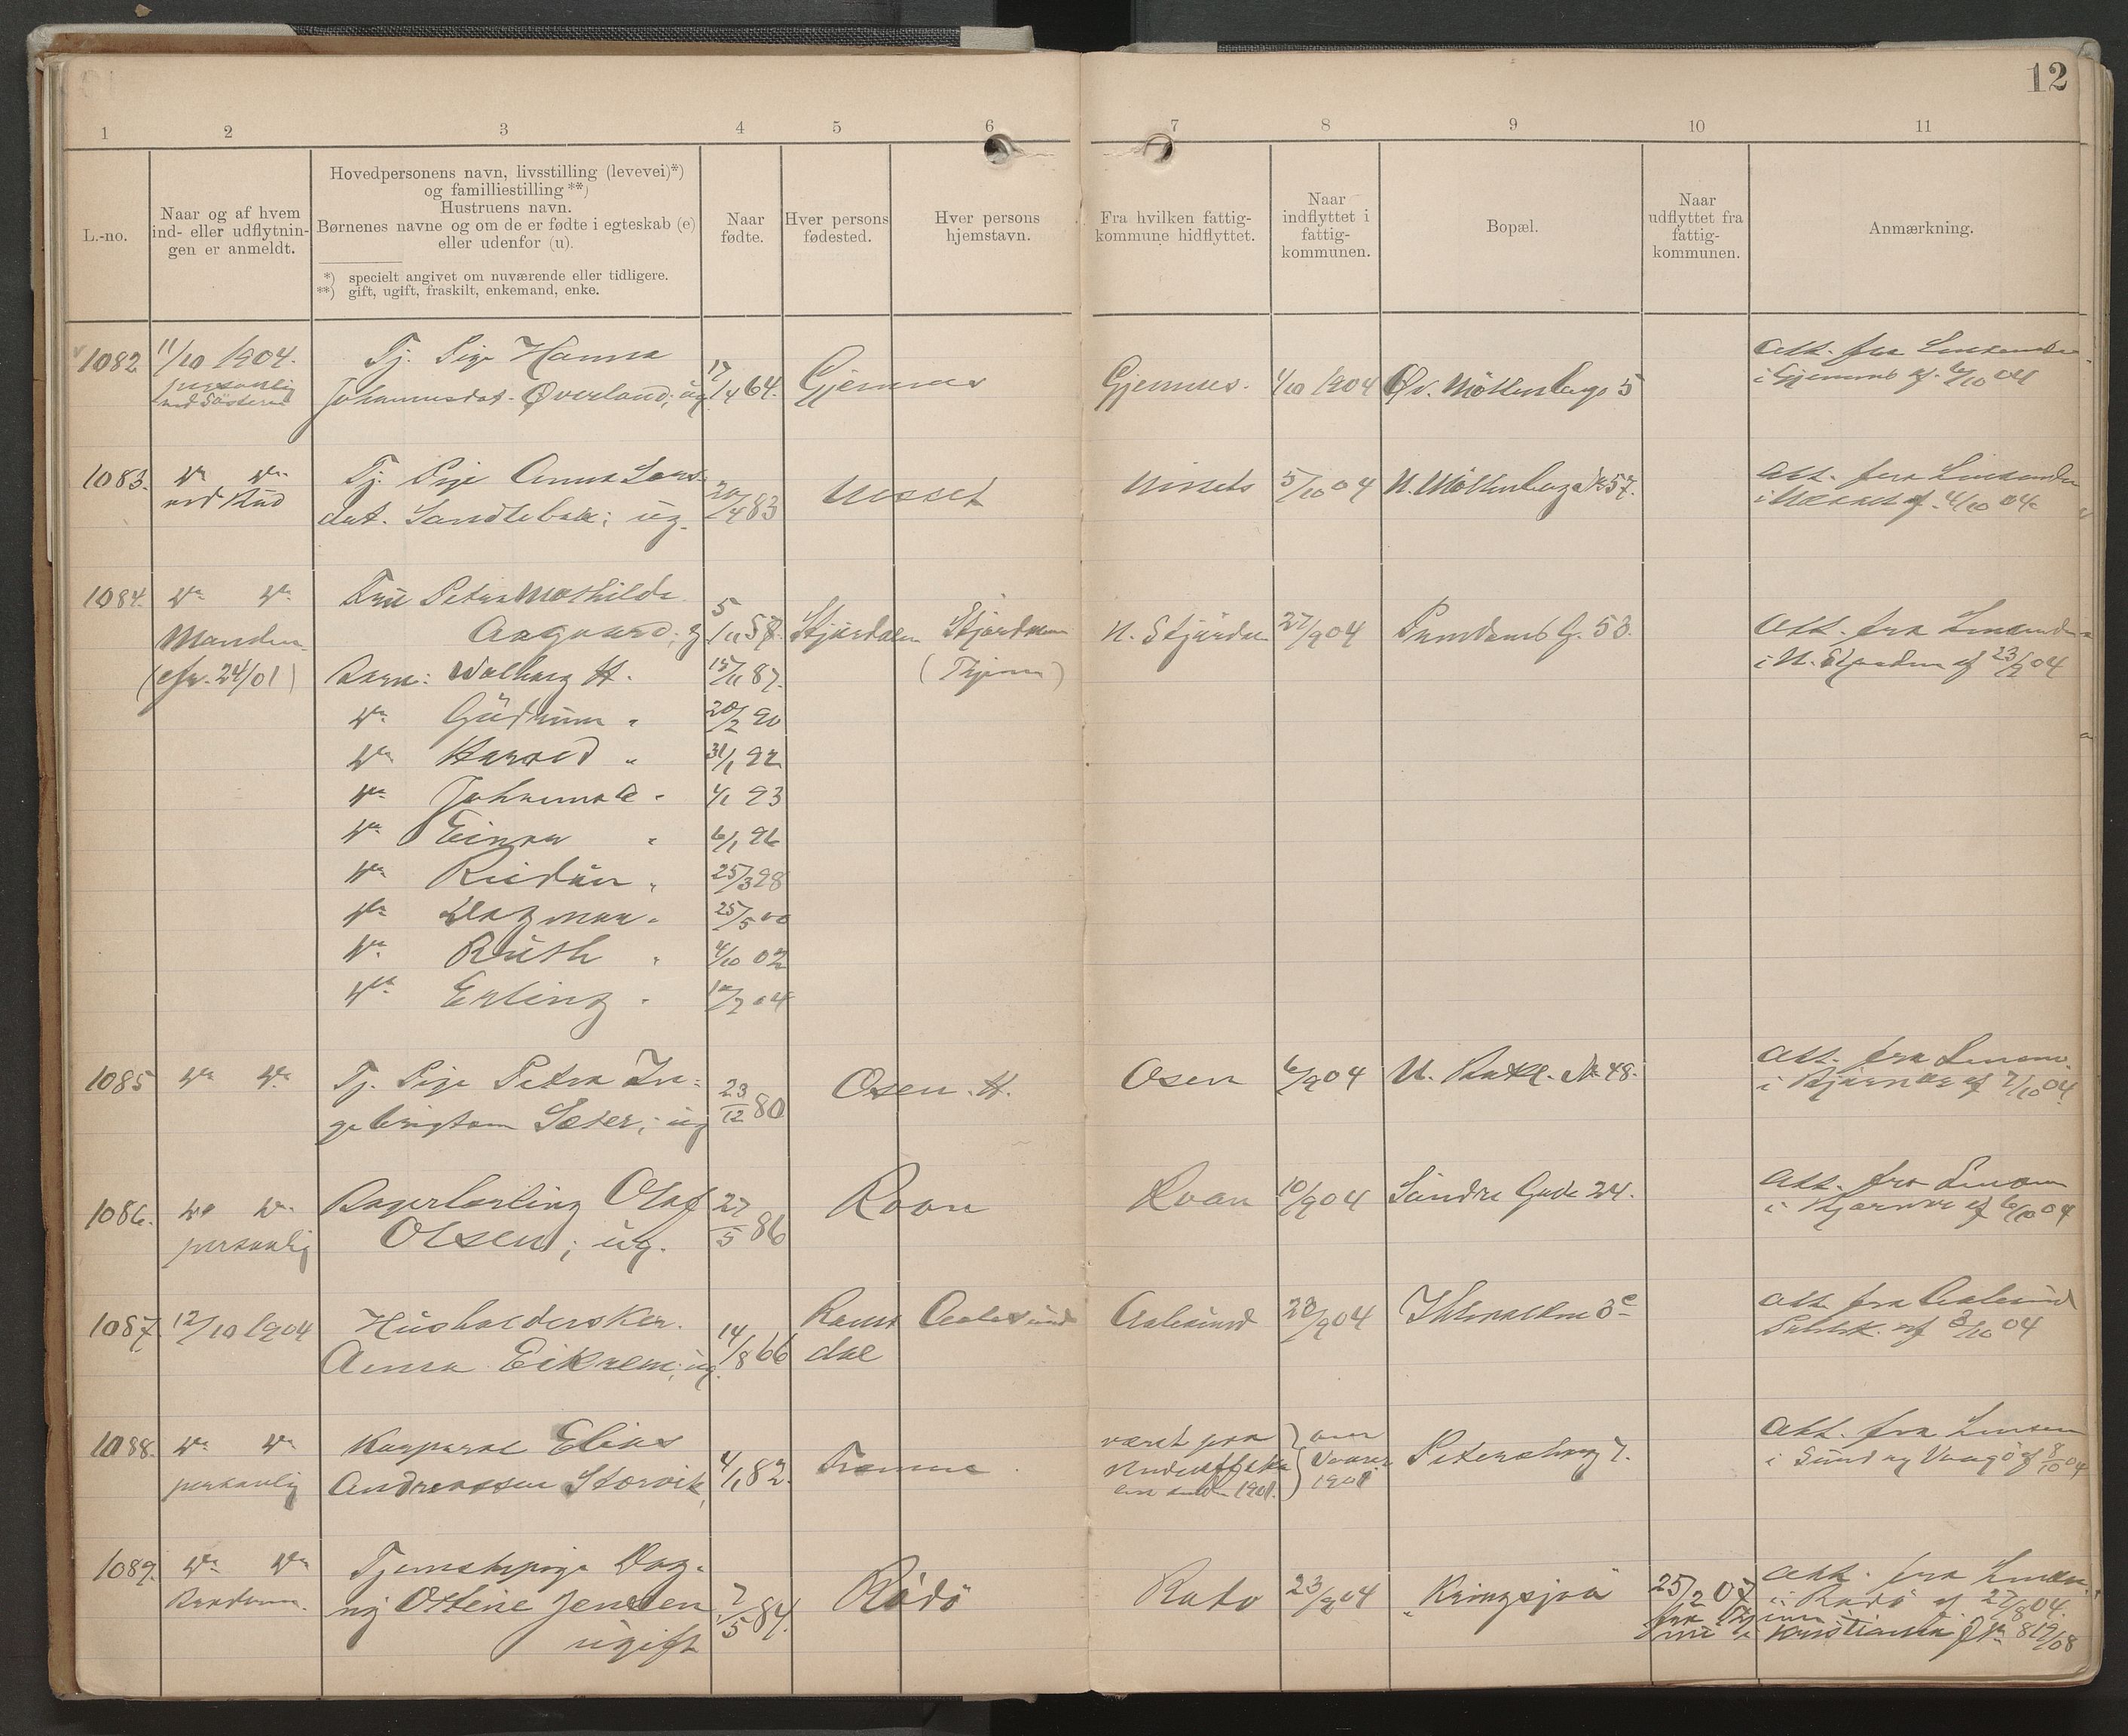 12
1 2 3 4 5 6 7 8 9 10 11
L.-no.
Naar og af hvem
ind- eller udflytnin-
gen er anmeldt.
Hovedpersonens navn, livsstilling (levevei)*)
og familliestilling **)
Hustruens navn.
Børnenes navne og om de er fødte i egteskab (e)
eller udenfor (u).
*) specielt angivet om nuværende eller tidligere.
**) gift, ugift, fraskilt, enkemand, enke.
Naar
fødte.
Hver persons
fødested.
Hver persons
hjemstavn.
Fra hvilken fattig-
kommune hidflyttet.
Naar
indflyttet i
fattig-
kommunen.
Bopæl.
Naar
udflyttet fra
fattig-
kommunen.
Anmærkning.
1082 11/10 1904. Tj. Pige Hanna
personlig
Johannesdat. Øverland; ug. 17/4 64. Gjemnes Gjemnes. 4/10 1904 Øv. Møllenberg 5
Att. fra Lensmden
i Gjemnes af 6/10 04
1083. Do Do Tj. Pige Anna Lars
ved Bud
dat. Sandlebak; ug. 20/4 83 Nesset Nessets 5/10 04 N. Møllenberg No 57.
Att. fra Lensmden
i Nesset af 4/10 04
1084. Do Do Fru Petra Mathilde
Manden
(cfr. 24/01)
Aagaard; g 5/11 57. Stjørdalen Stjørdalen
(Thjem)
N. Stjørdalen 27/9 04 Prindsens G. 53.
Att. fra Lensmden
i N. Stjørdalen af 23/9 04
Barn: Valborg H. 15/11 87.
Do Gudrun " 20/2 90
Do Harald " 31/1 92
Do Johanna " 4/1 93
Do Einar " 6/1 96
Do Reidun " 25/3 98
Do Dagmar " 25/5 00
Do Ruth " 4/10 02
Do Erling " 04
1085 Do Do Tj. Pige Petra In-
gebrigtsen Sæter; ug 23/12 80 Osen. H. Osen 6/9 04 N. Bakl. No 48.
Att. fra Lensm.
i Bjørnør af 7/10 04.
1086. Do Do Bagerlærling Olaf
personlig
Olsen; ug. 27/5 86 Roan Roan 10/9 04 Søndre Gade 24.
Att. fra Lensm
i Bjørnør af 6/10 04
1087. 12/10 1904 Husholderske
Anna Eikrem; ug. 14/8 66 Roms
dal
Aalesund Aalesund 28/9 04
Att fra Aalesund
af 3/10 04
1088. Do Do Korporal Elias
personlig
Andreassen Storvik, 4/1 82. Tromsø
været paa
1901.
Vaaren
1901
Petersborg 7.
Att. fra Lensm
i Sund og Vaagø af 8/10 04
1089. Do Do Tjenestepige Dag-
ny Ottine Jensen 7/5 84. Rødø Rødø 23/9 04 Kringsjaa 25/2 07
ugift
Att. fra Lensm.
i Rødø af 27/8 04.
nu i Kristiania J No 819/08